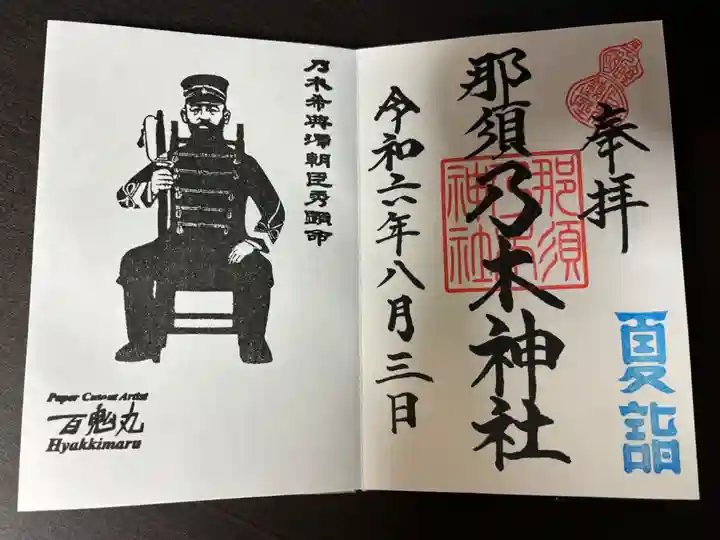 奉拝
那須乃木神社
那須
神社
令和六年八月三日
夏詣
乃木希典源朝臣秀顕命
Paper Cutout Artist
百鬼丸
Hyakkimaru